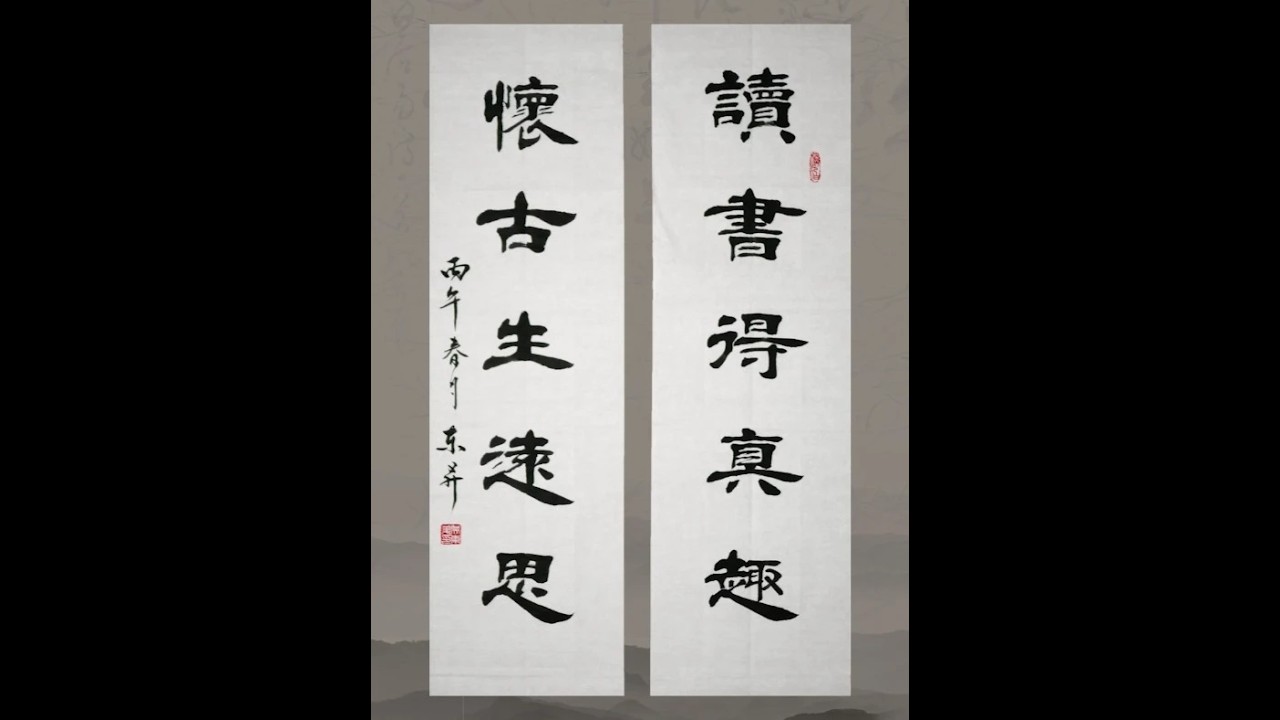 讀書得真趣
懷古生遠思
丙午春月 东